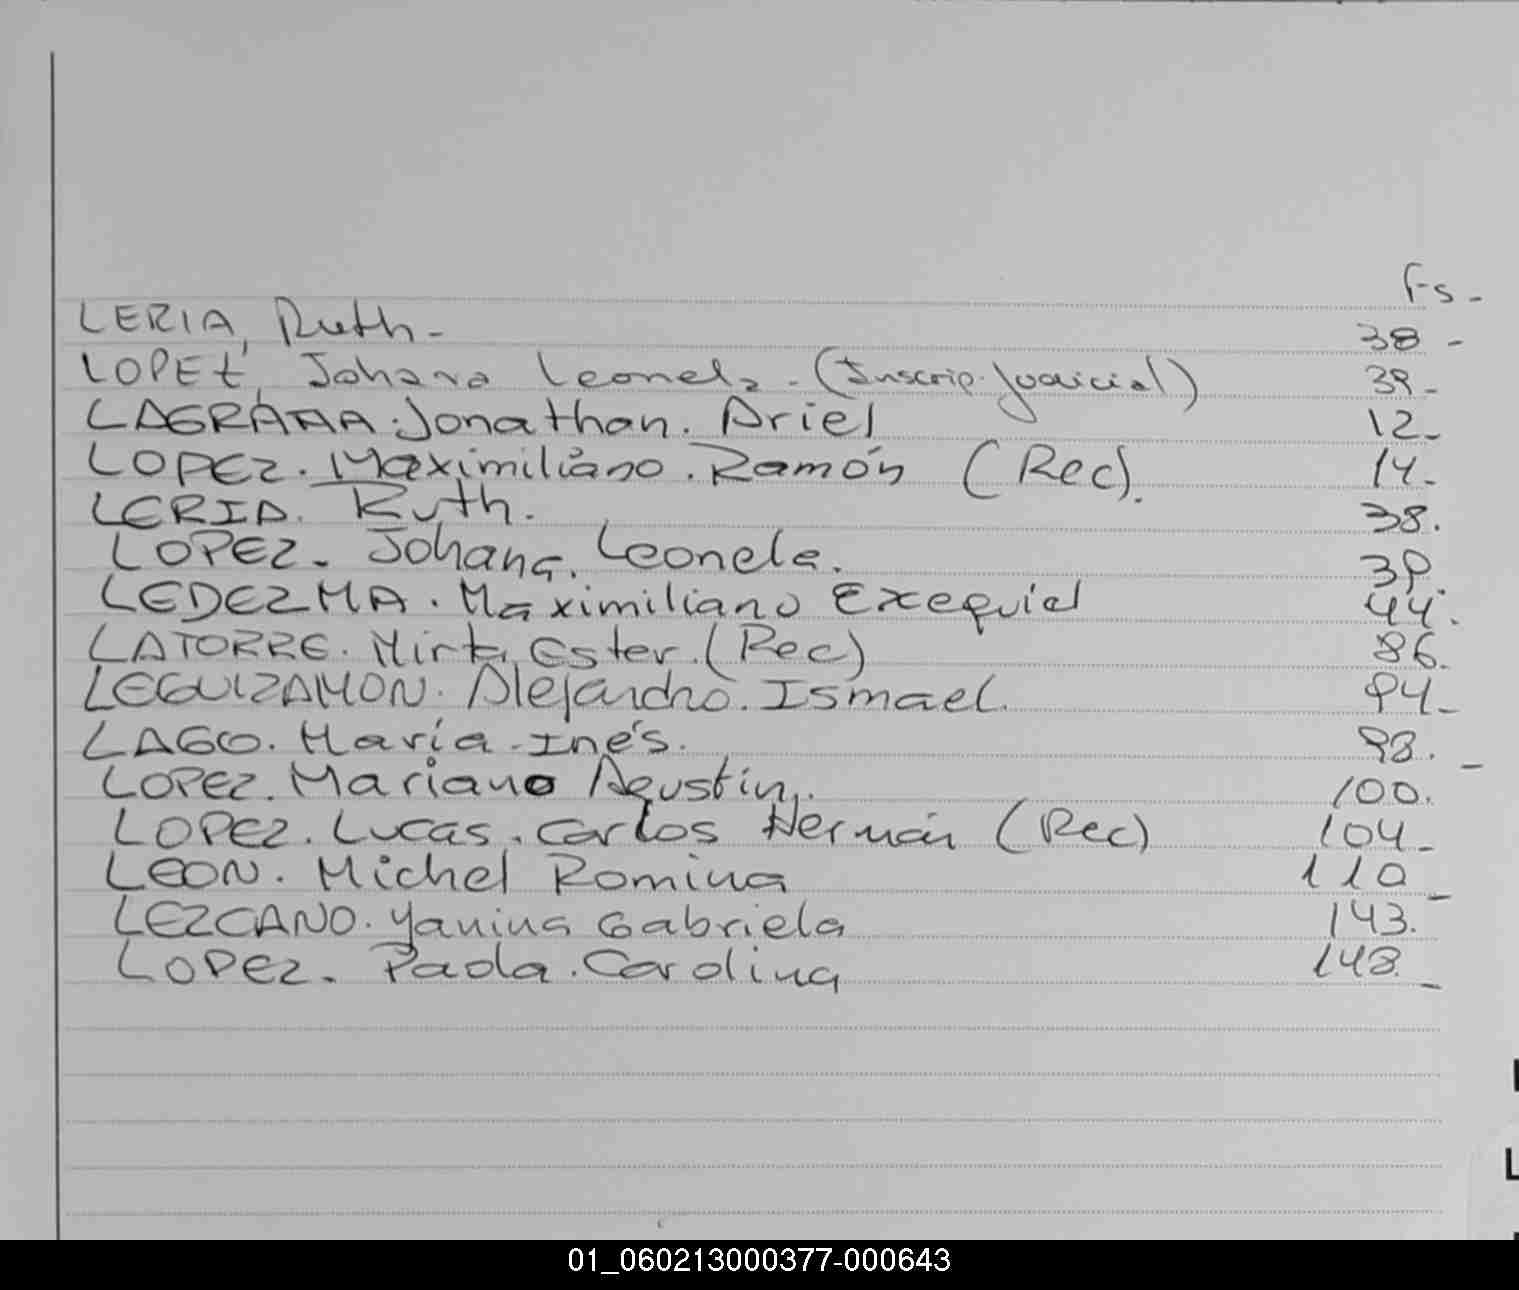 Fs-
LERIA, Ruth- 38-
LOPEZ, Johana Leonela-(Inscrip. Judicial) 39-
LAGRAÑA. Jonathan. Ariel 12-
LOPEZ. Maximiliano. Ramón (Rec). 14-
LERIA. Ruth. 38.
LOPEZ. Johana. Leonela. 39.
LEDEZMA. Maximiliano Exequiel 44.
LATORRE. Mirta Ester. (Rec) 86.
LEGUIZAMON. Alejandro. Ismael. 94-
LAGO. María-Inés. 98.-
LOPEZ. Mariano Agustín. 100.
LOPEZ. Lucas. Carlos Hernán (Rec) 104-
LEON. Michel Romina 110-
LEZCANO. Yanina Gabriela 143.
LOPEZ. Paola. Carolina 148.-
01_060213000377-000643